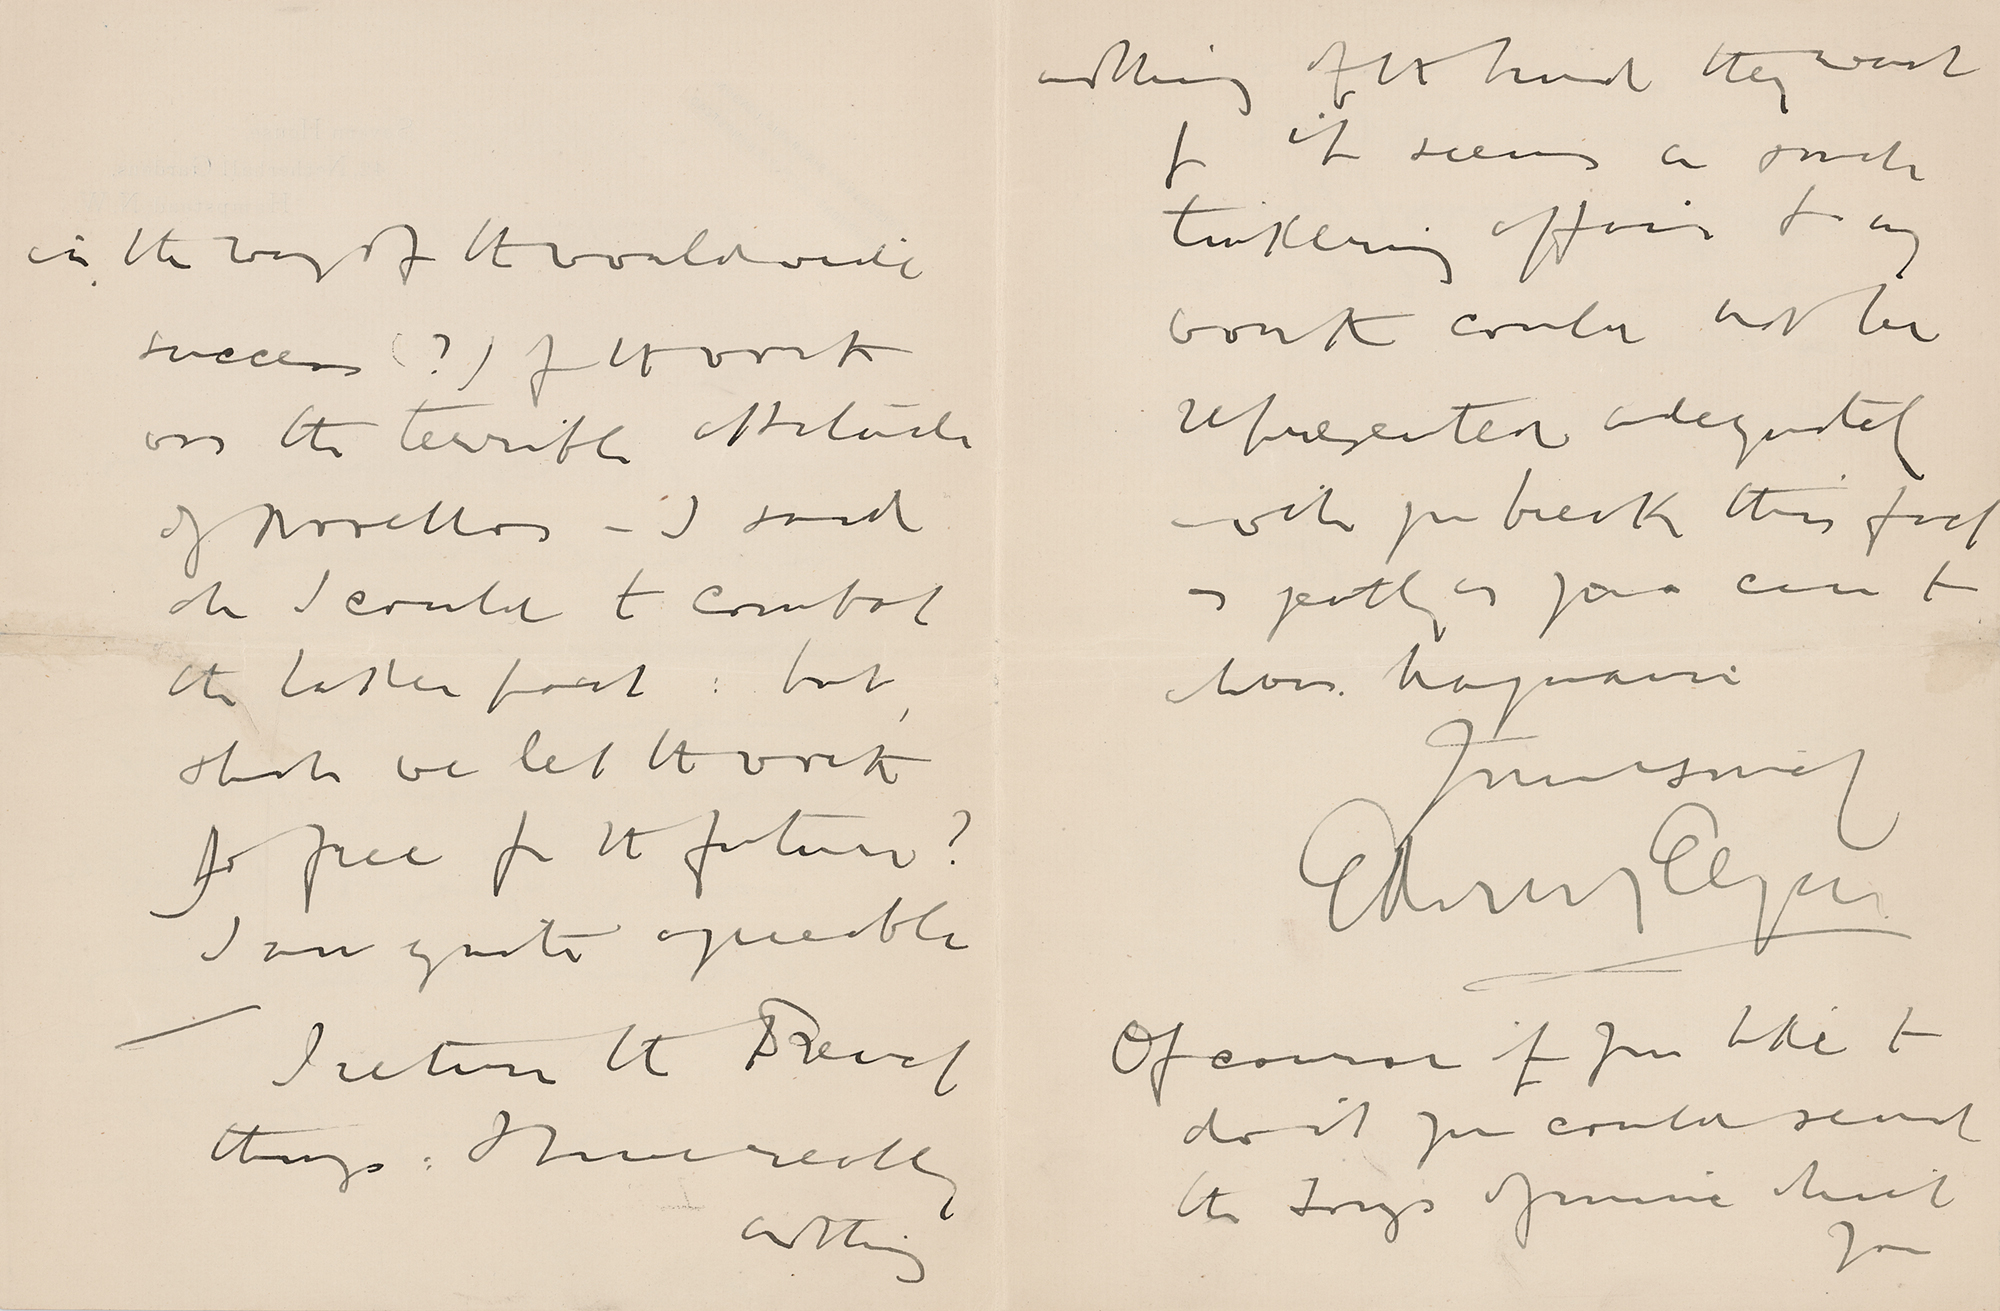 in the way of the world wide
success (?) of the work
was the terrible attitude
of Novellos – I said
all I could to combat
the latter part : but,
shall we let the work
go free for the future?
I am quite agreeable
I return the French
things : I have really
nothing
nothing of the kind they want
& it seems a small
tinkering affair & my
work could not be
represented adequately
– will you break this fact
as gently as you can to
Mons.
Yours sincly
Edward Elgar
Of course if you like to
do it you could send
the songs of mine which
you